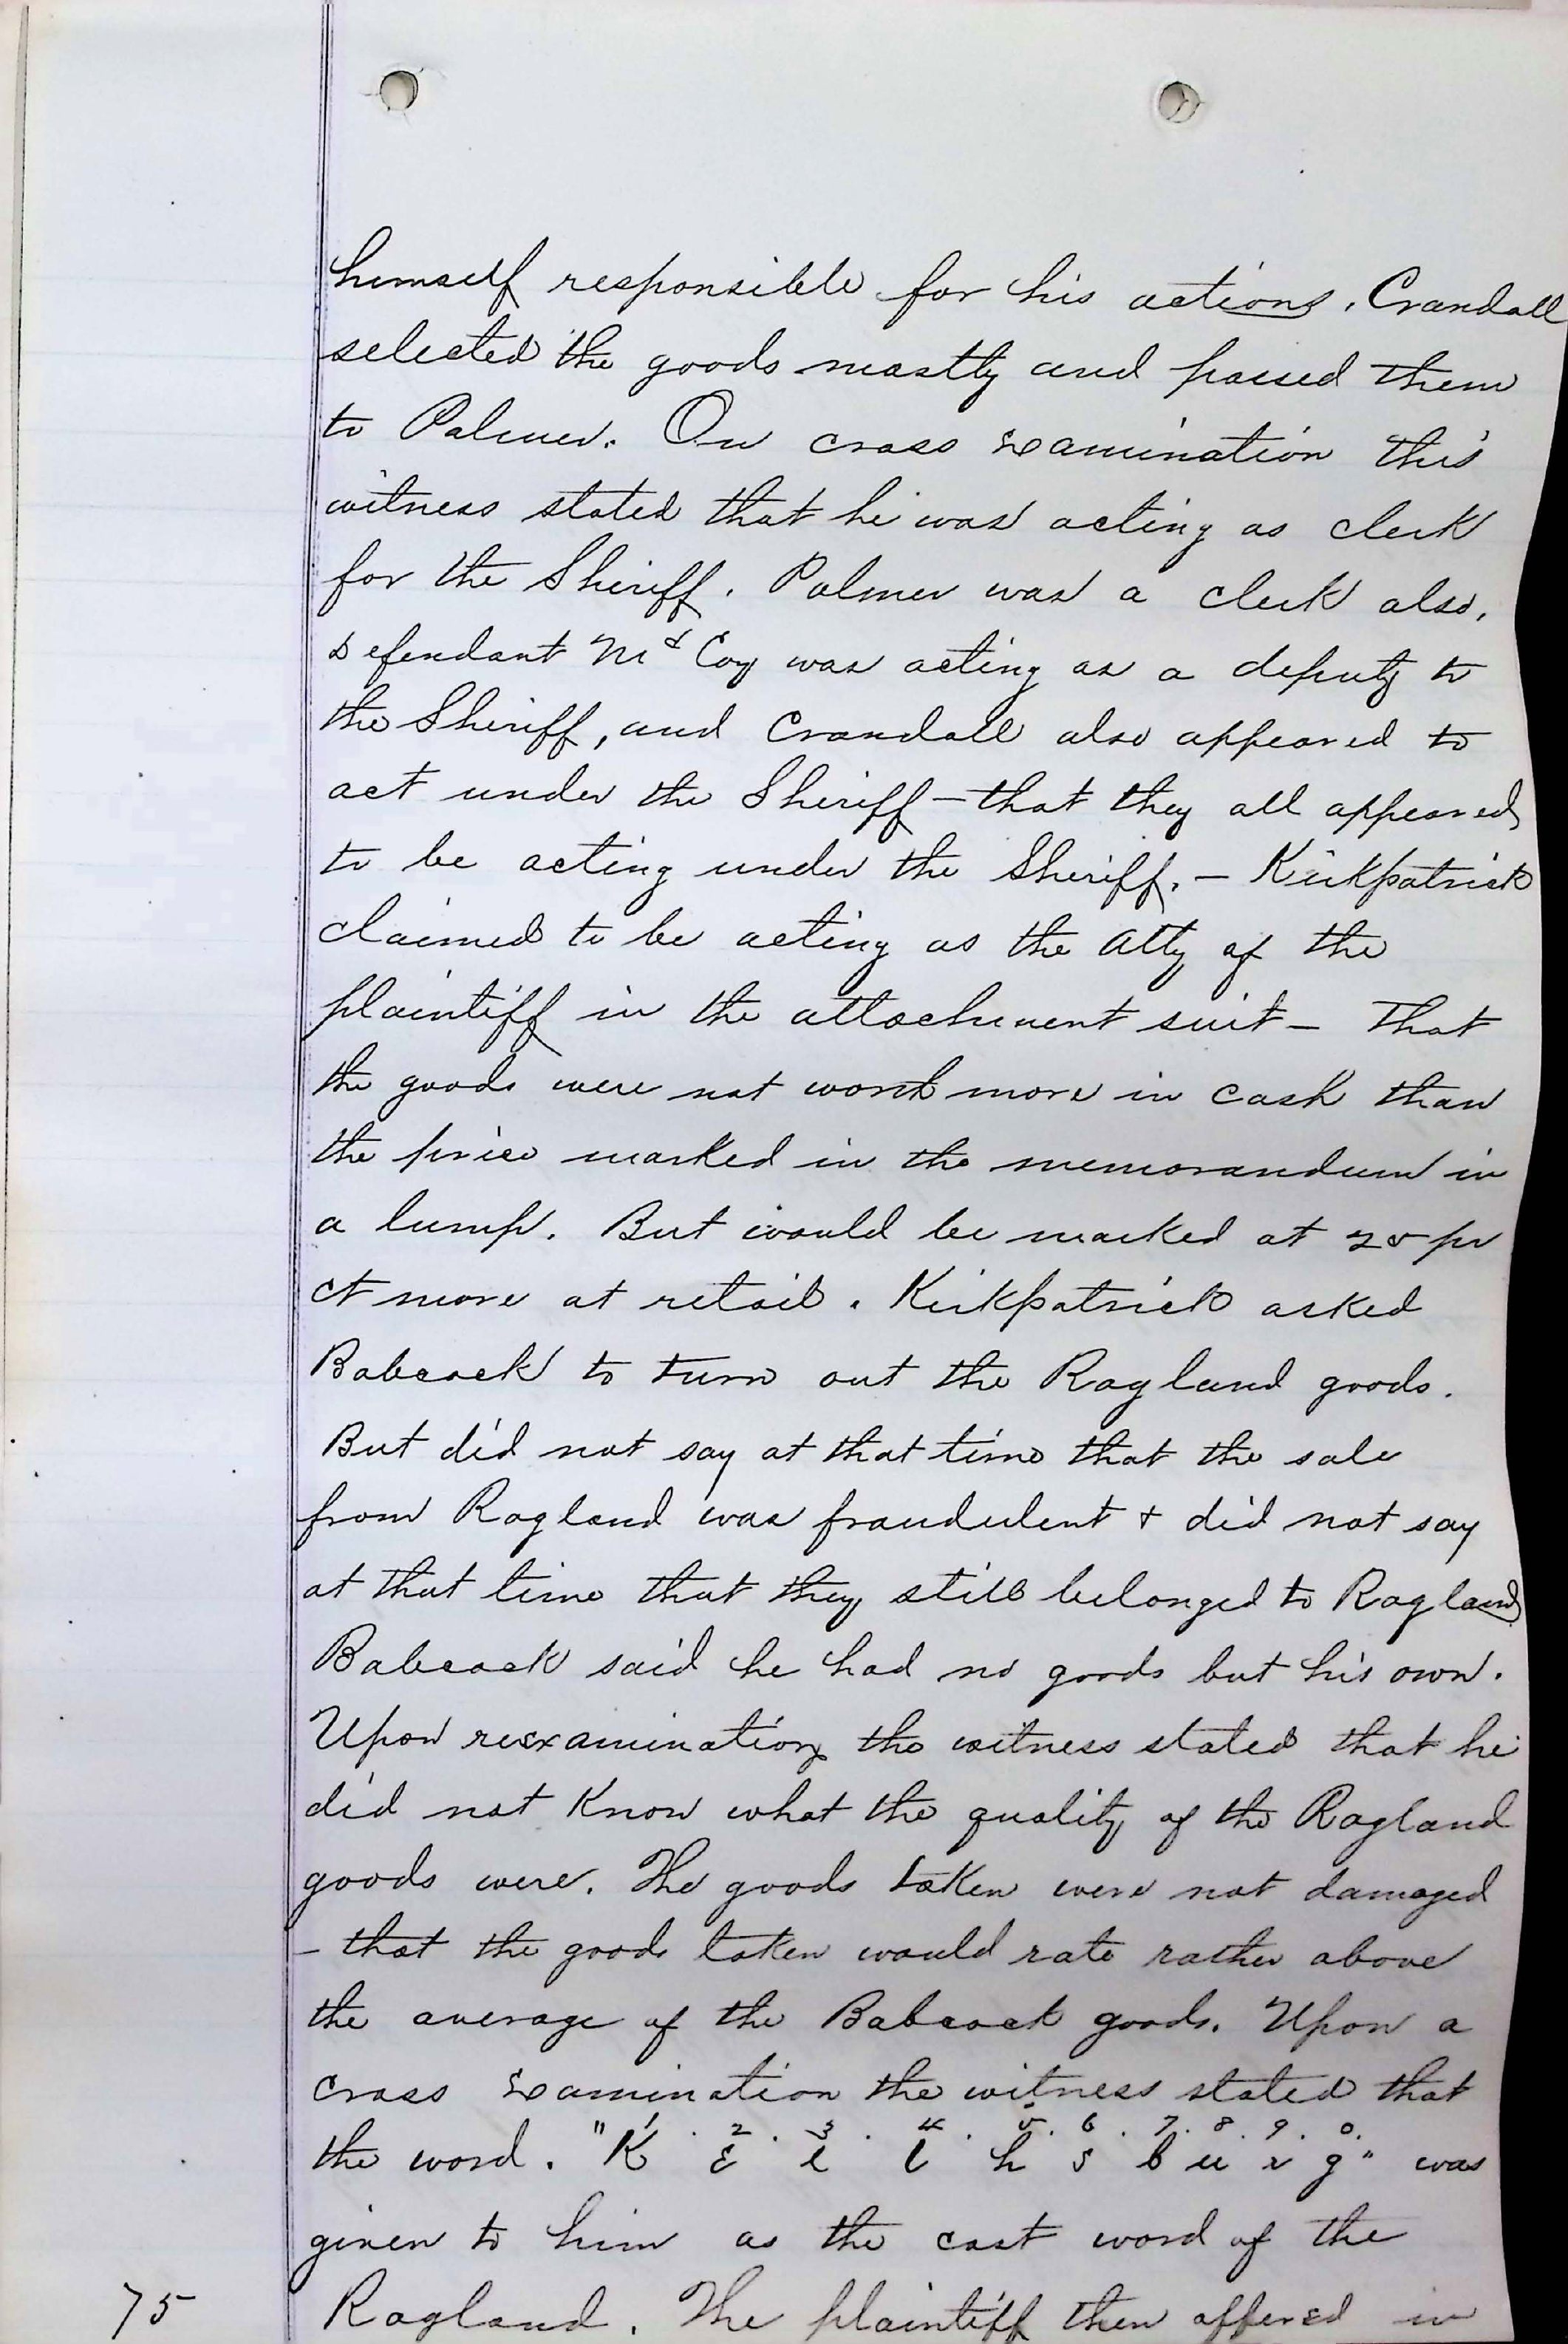 himself responsible for his actions. Crandall
selected the goods mostly and passed them
to Palmer. On cross examination this
witness stated that he was acting as clerk
for the Sheriff. Palmer was a clerk also.
defendant McCoy was acting as a deputy to
the Sheriff, and Crandall also appeared to
act under the Sheriff – that they all appeared
to be acting under the Sheriff. – Kirkpatrick
claimed to be acting as the Atty of the
plaintiff in the attachment suit – That
the goods were not worth more in cash than
the price marked in the memorandum in
a lump. But would be marked at 25 pr
ct more at retail. Kirkpatrick asked
Babcock to turn out the Ragland goods.
But did not say at that time that the sale
from Ragland was fraudulent + did not say
at that time that they still belonged to Ragland
Babcock said he had no goods but his own.
Upon reexamination the witness stated that he
did not Know what the quality of the Ragland
goods were. The goods taken were not damaged
– that the goods taken would rate rather above
the average of the Babcock goods. Upon a
cross examination the witness stated that
1 . 2 . 3 . 4 . 5 . 6 . 7 . 8 . 9 . 0.
the word. "K e l l h s b u r g" was
given to him as the cost word of the
75 Ragland. The plaintiff then offered in